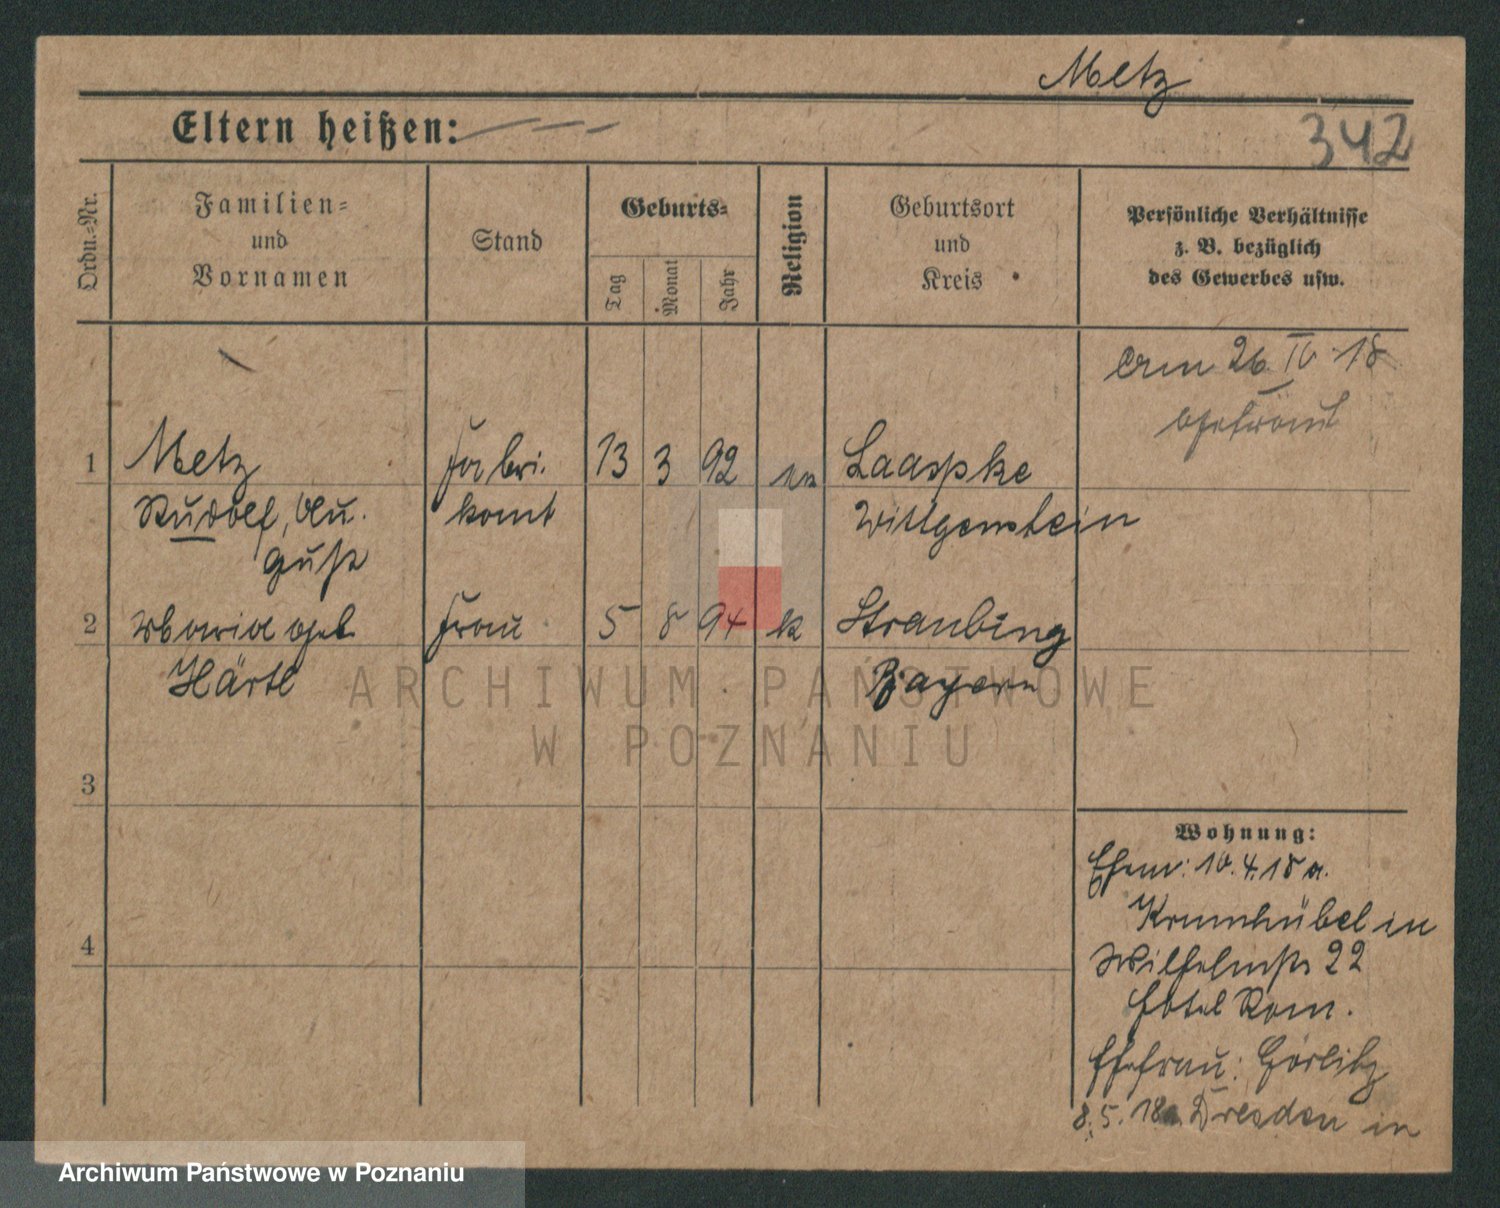 Metz
Eltern heißen:
342
Ordn.-Nr.
Familien-
und
Vornamen
Stand
Geburts-
Tag
Monat
Jahr
Religion
Geburtsort
und
Kreis
Persönliche Verhältnisse
z. B. bezüglich
des Gewerbes usw.
Am 26. IV 18
getraut
1 Metz Fabri- 13 3 92 Laaspke
Rudolf, Au- kant Wittgenstein
gust
2 Maria geb. Frau 5 8 94 k Straubing
Härtl Bayern
3
4
Wohnung:
Ehem: 10.4.18 a.
Krumhübel in
Wilhelmstr 22
Hotel Rom.
Ehefrau: Görlitz
8.5.18 a. Dresden in
ARCHIWUM PAŃSTWOWE
W POZNANIU
Archiwum Państwowe w Poznaniu